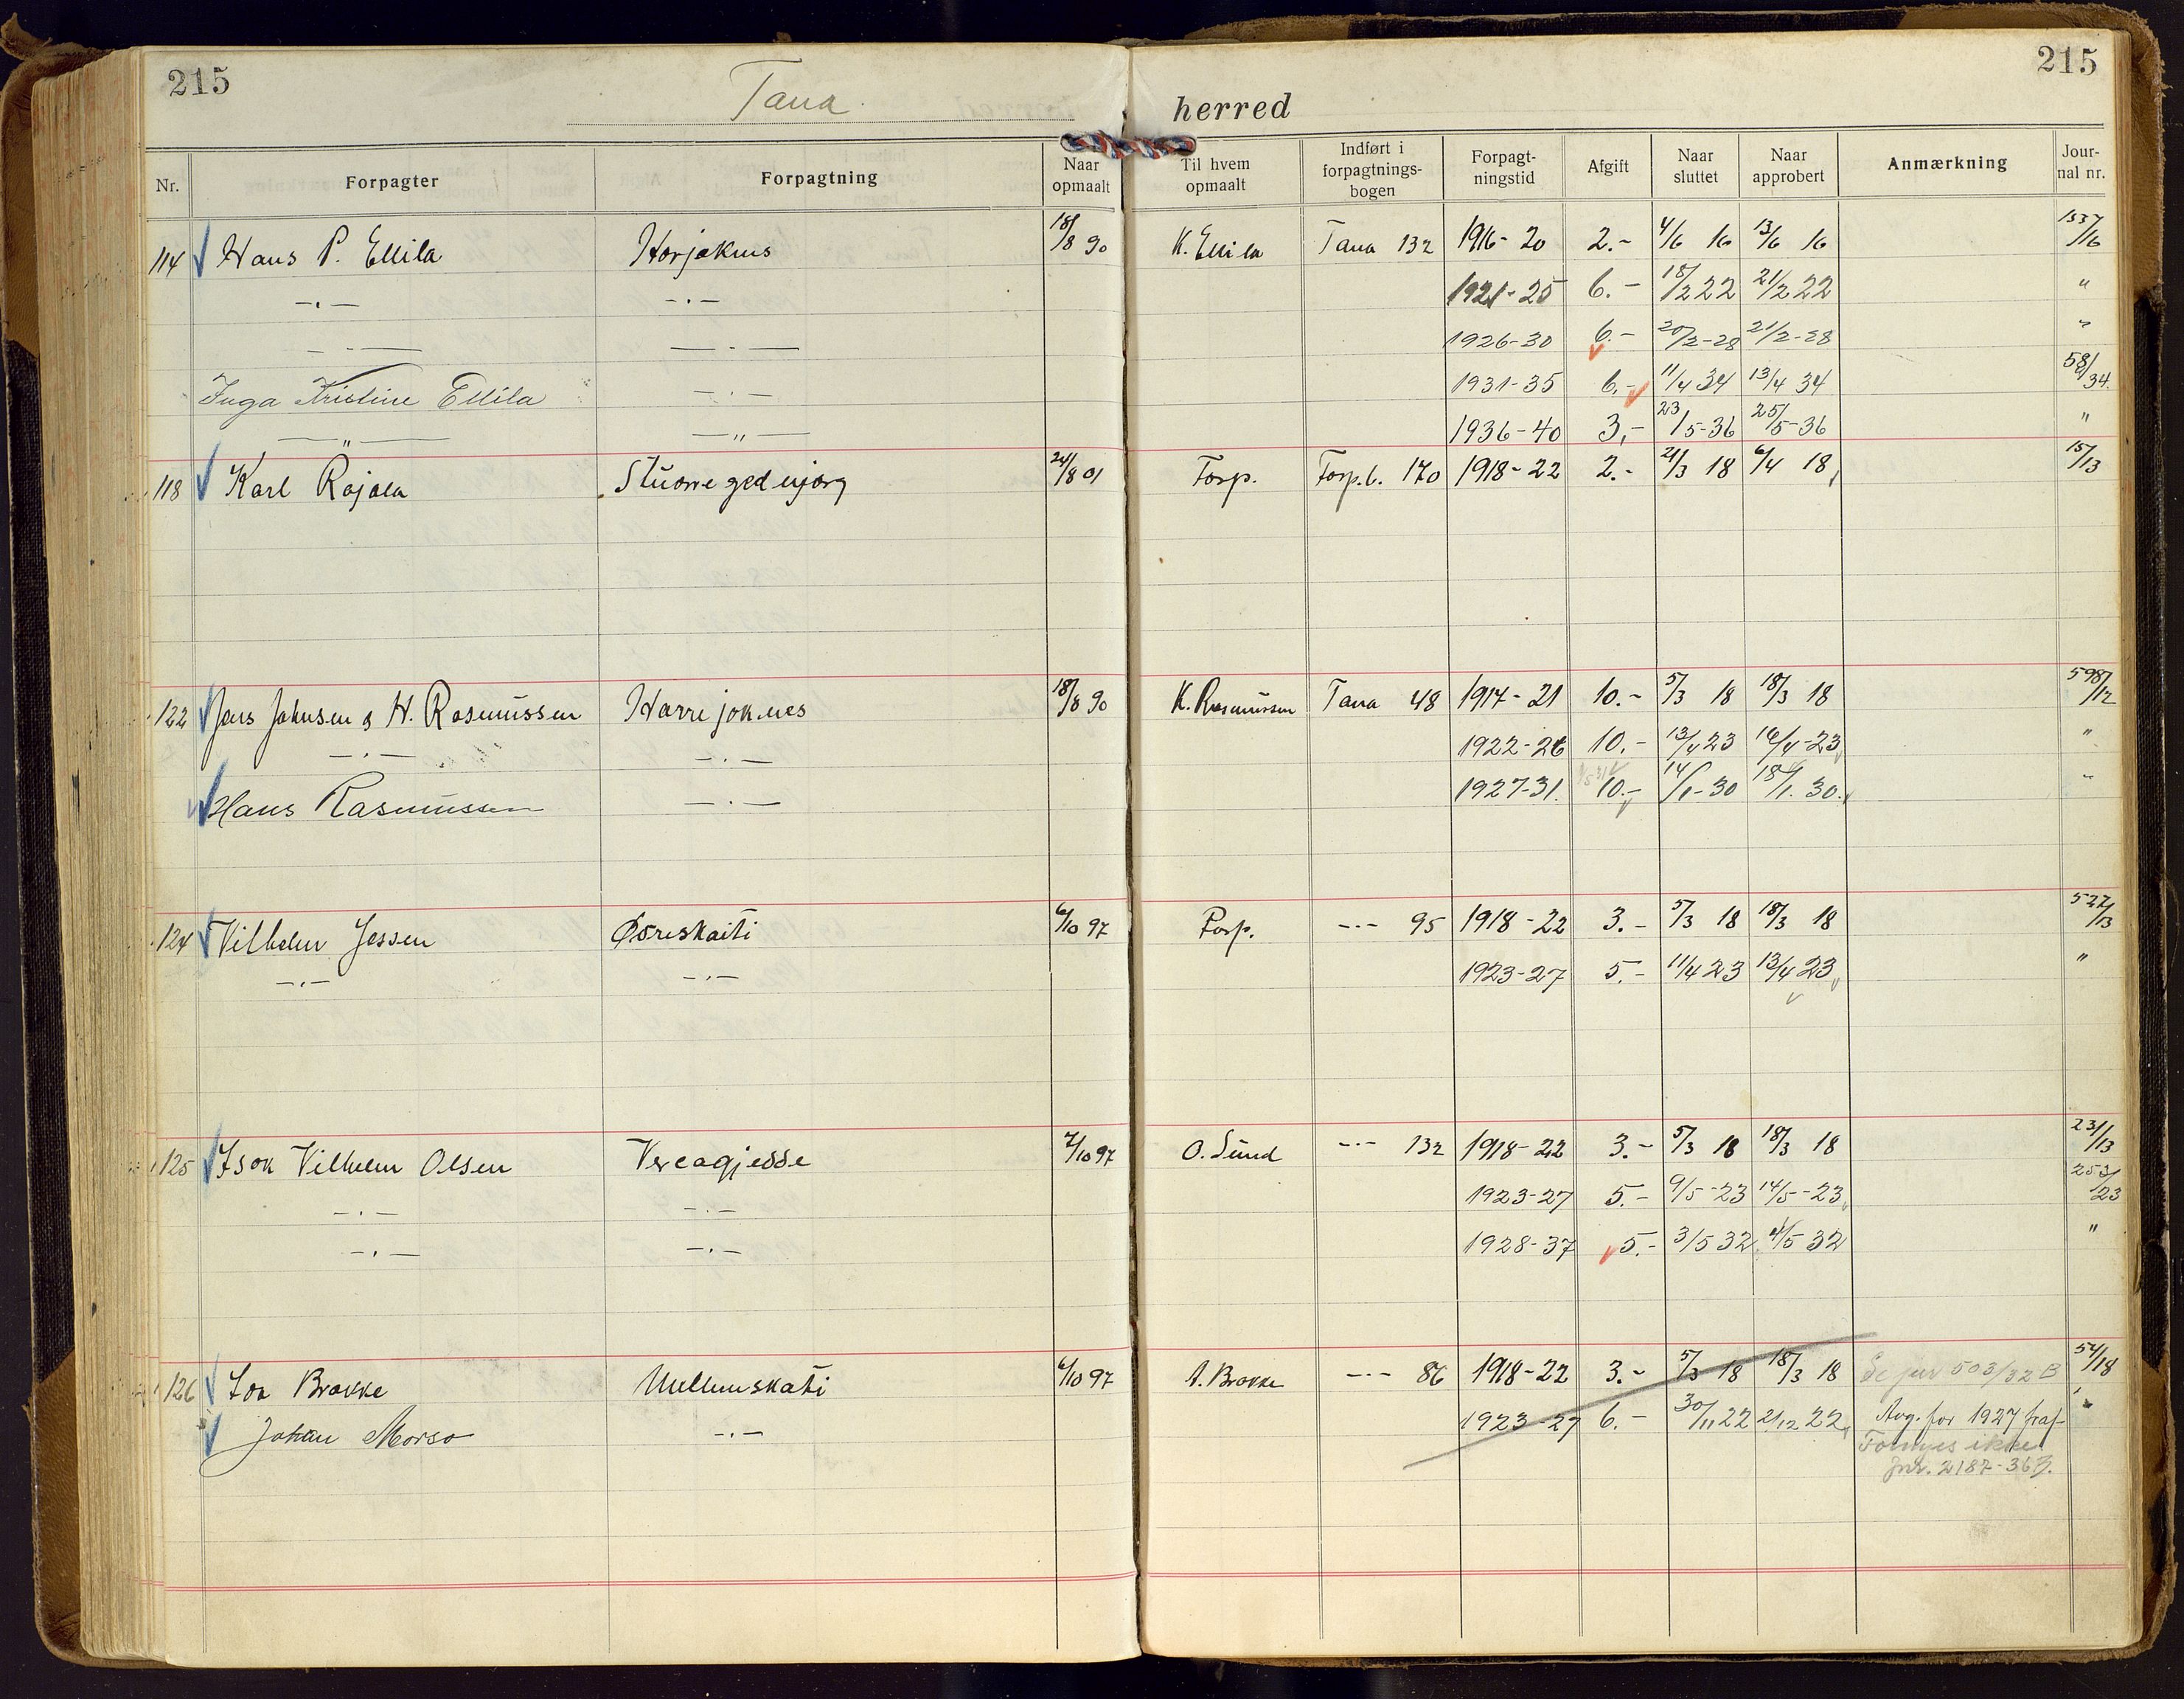 215 Tana herred 215
Nr. Forpagter Forpagtning Naar opmaalt Til hvem opmaalt Indført i forpagtnings-bogen Forpagt-ningstid Afgift Naar sluttet Naar approbert Anmærkning Jour-nal nr.
114 Hans P. Ellila Horjoknes 18/8 90 K. Ellila Tana 132 1916-20 2.- 4/6 16 13/6 16 1537/16
-"- -"- 1921-25 6.- 18/2 22 21/2 22 "
-"- -"- 1926-30 6.- 20/2-28 21/2-28 "
Inga Kristine Ellila -"- 1931-35 6,- 11/4 34 13/4 34 58/34
-"- -"- 1936-40 3,- 23/5-36 25/5-36 "
118 Karl Rajala Stuorre gednjarg 24/8 01 Forp. Forp.b. 170 1918-22 2.- 21/3 18 6/4 18 15/13
122 Jens Johnsen & H. Rasmussen Harrejoknes 18/8 90 K. Rasmussen Tana 48 1917-21 10.- 5/3 18 18/3 18 598/12
-"- -"- 1922-26 10.- 13/4 23 16/4-23 "
Hans Rasmussen -"- 1927-31. 10.- 14/1-30 18/1. 30. "
124 Vilhelm Jessen Øvreskaiti 6/10 97 Forp. -"- 95 1918-22 3.- 5/3 18 18/3 18 527/13
-"- -"- 1923-27 5.- 11/4 23 13/4 23 "
125 Isak Vilhelm Olsen Vercagjedde 7/10 97 O. Sund -"- 132 1918-22 3.- 5/3 18 18/3 18 231/13
-"- -"- 1923-27 5.- 9/5-23 14/5-23 253/23
-"- -"- 1928-37 5.- 3/5 32 4/5 32 "
126 Ion Brakke Mellemskati 6/10 97 A. Brakke -"- 86 1918-22 3.- 5/3 18 18/3 18 Se jnr 503/32 B 54/18
Johan Morso -"- 1923-27 6.- 30/11 22 21/12 22 Avg. for 1927 fraf- "
Fornyes ikke
Jnr. 2187-36 B.